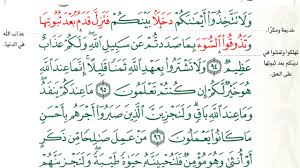 وَلَا تَتَّخِذُوٓاْ أَيْمَٰنَكُمْ دَخَلًۢا بَيْنَكُمْ فَتَزِلَّ قَدَمٌۢ بَعْدَ ثُبُوتِهَا
وَتَذُوقُواْ ٱلسُّوٓءَ بِمَا صَدَدتُّمْ عَن سَبِيلِ ٱللَّهِ وَلَكُمْ عَذَابٌ
عَظِيمٌ ٩٤ وَلَا تَشْتَرُواْ بِعَهْدِ ٱللَّهِ ثَمَنًا قَلِيلًا إِنَّمَا عِندَ ٱللَّهِ
هُوَ خَيْرٌ لَّكُمْ إِن كُنتُمْ تَعْلَمُونَ ٩٥ مَا عِندَكُمْ يَنفَدُ
وَمَا عِندَ ٱللَّهِ بَاقٍ وَلَنَجْزِيَنَّ ٱلَّذِينَ صَبَرُوٓاْ أَجْرَهُم بِأَحْسَنِ
مَا كَانُواْ يَعْمَلُونَ ٩٦ مَنْ عَمِلَ صَٰلِحًا مِّن ذَكَرٍ
أَوْ أُنثَىٰ وَهُوَ مُؤْمِنٌ فَلَنُحْيِيَنَّهُۥ حَيَوٰةً طَيِّبَةً وَلَنَجْزِيَنَّهُمْ
خديعة ومكرًا.
تهلكوا وتفتنوا في
دينكم بعد ثبوتها
على الحق.
عذاب الله
في الدنيا.